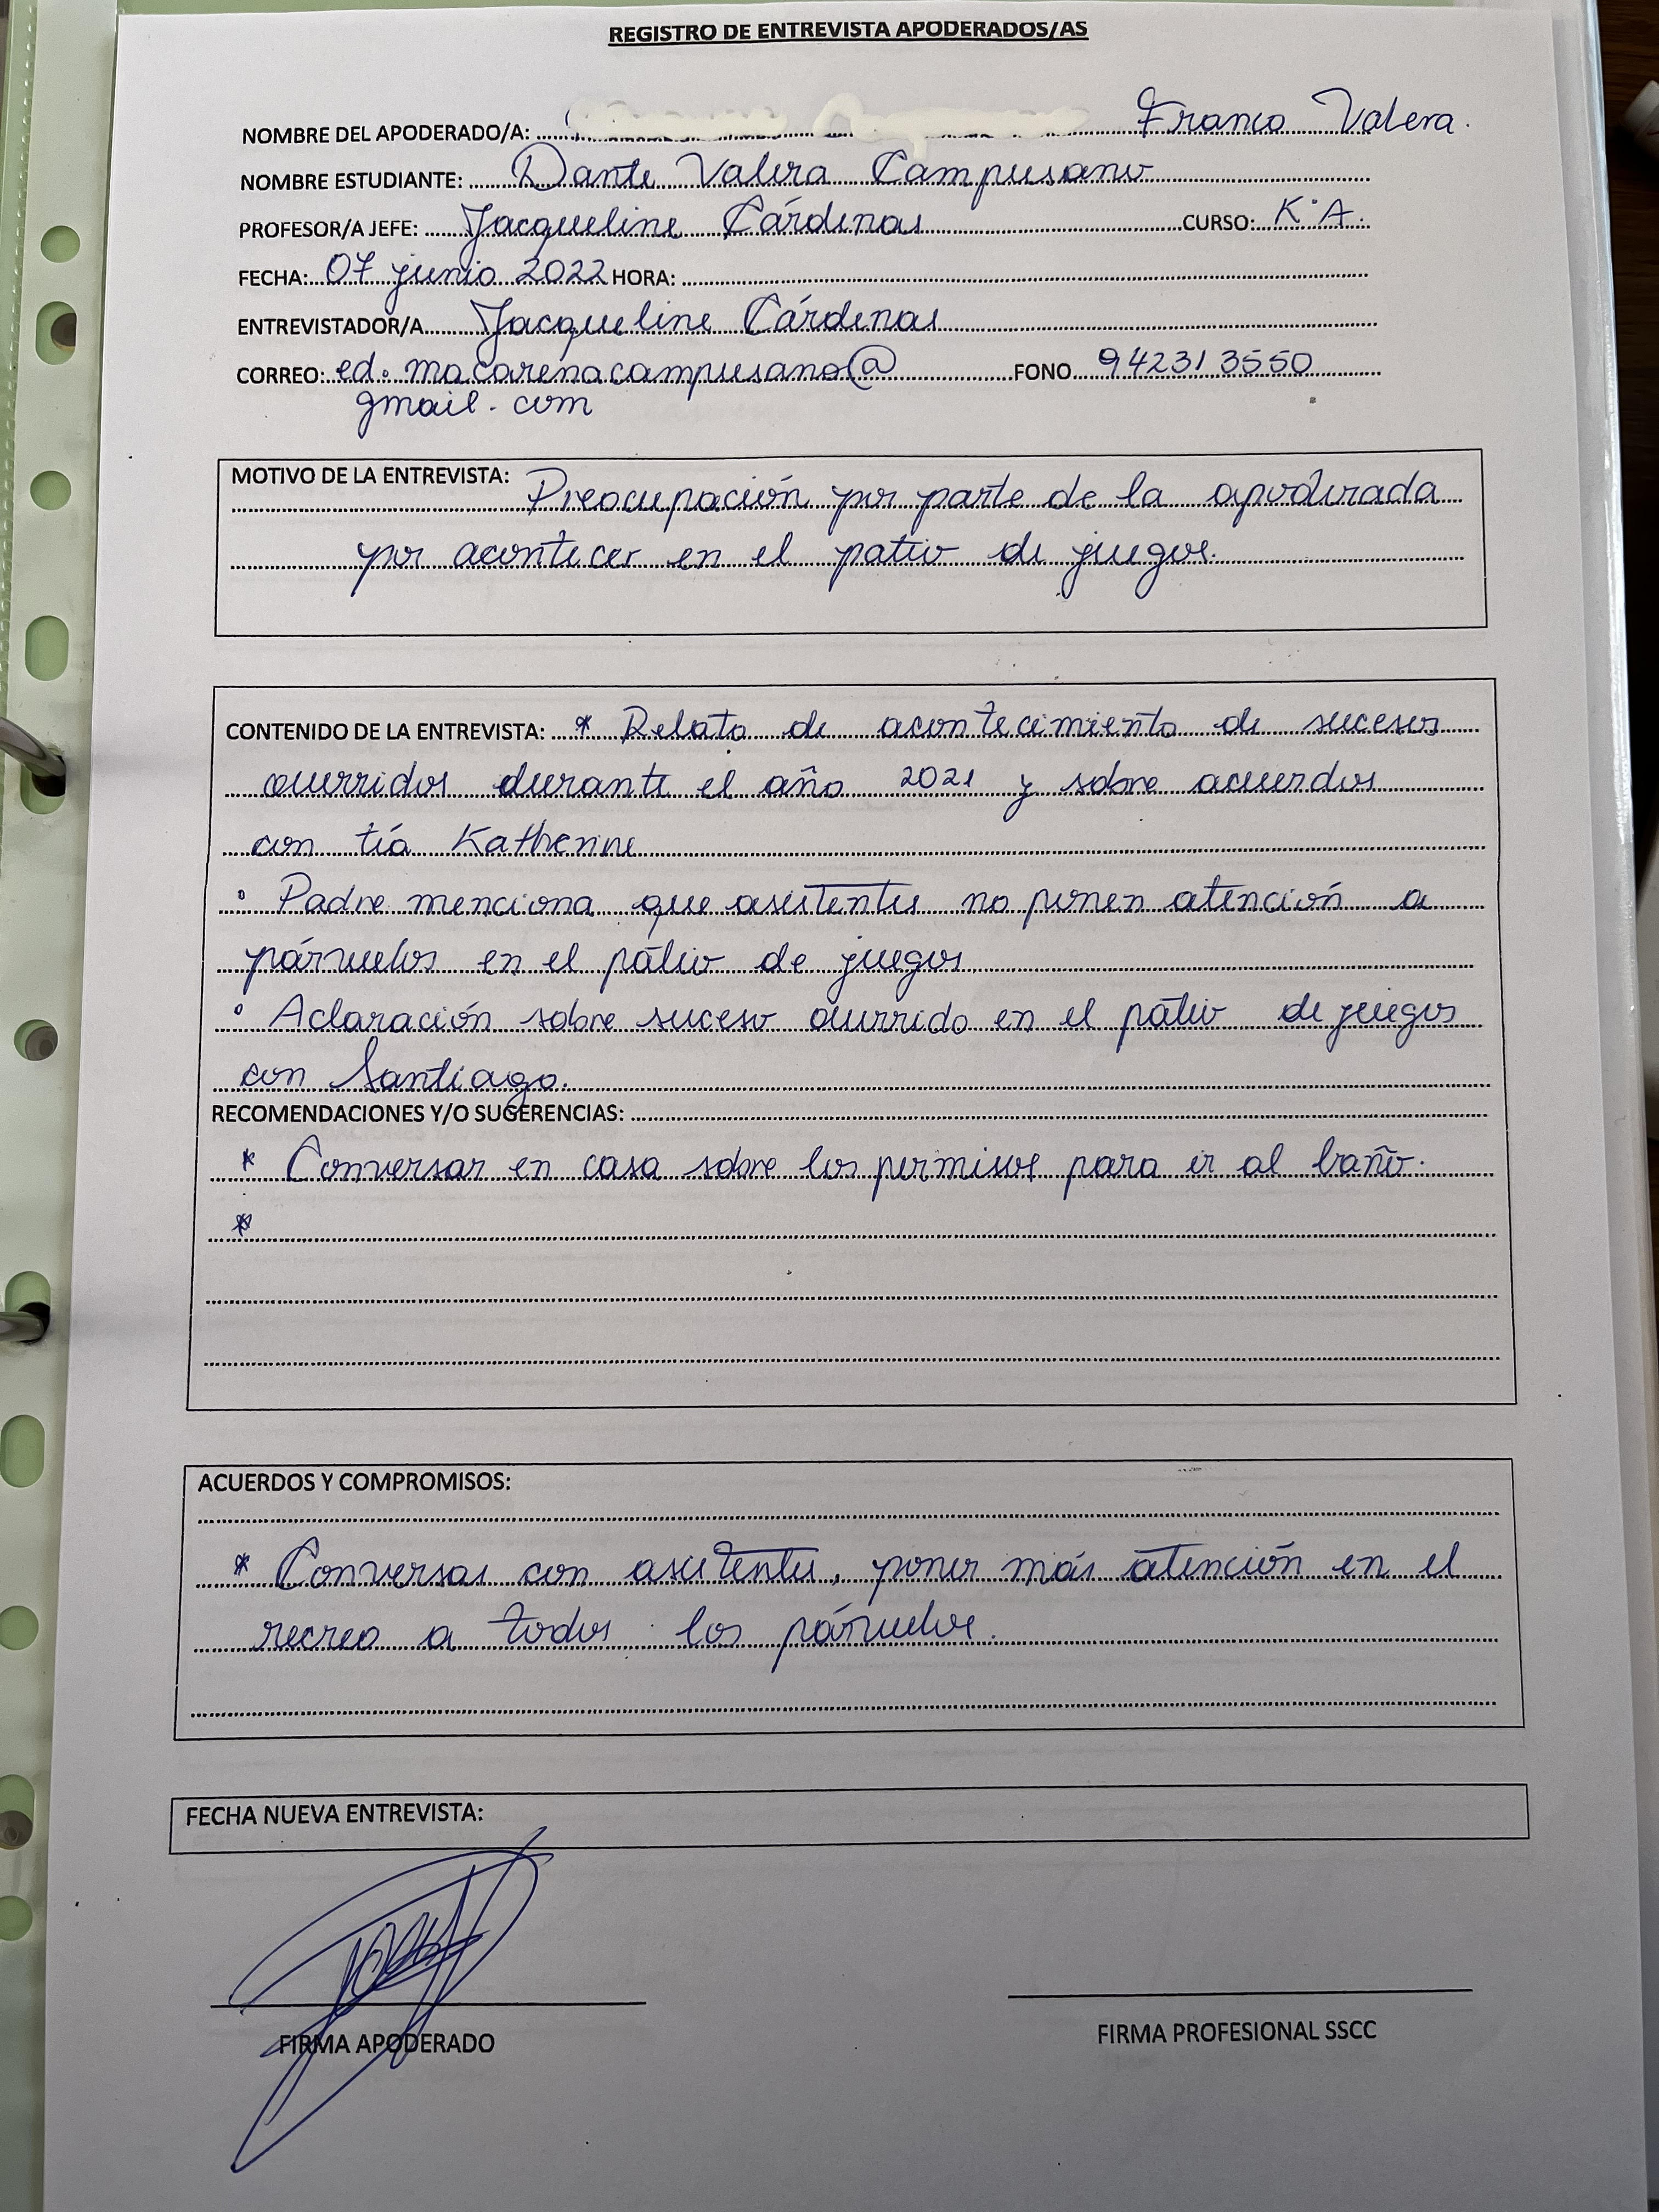 REGISTRO DE ENTREVISTA APODERADOS/AS
NOMBRE DEL APODERADO/A: Franco Valera.
NOMBRE ESTUDIANTE: Dante Valera Campusano
PROFESOR/A JEFE: Jacqueline Cárdenas CURSO: K°A.
FECHA: 07 junio 2022 HORA:
ENTREVISTADOR/A Jacqueline Cárdenas
CORREO: ed.macarenacampusano@ FONO 942313550
gmail.com
MOTIVO DE LA ENTREVISTA: Preocupación por parte de la apoderada
por acontecer en el patio de juegos.
CONTENIDO DE LA ENTREVISTA: * Relato de acontecimiento de sucesos
ocurridos durante el año 2021 y sobre acuerdos
con tía Katherine
° Padre menciona que asistentes no ponen atención a
párvulos en el patio de juegos
° Aclaración sobre suceso ocurrido en el patio de juegos
con Santiago.
RECOMENDACIONES Y/O SUGERENCIAS:
* Conversar en casa sobre los permisos para ir al baño.
*
ACUERDOS Y COMPROMISOS:
* Conversar con asistentes, poner más atención en el
recreo a todos los párvulos.
FECHA NUEVA ENTREVISTA:
FIRMA APODERADO FIRMA PROFESIONAL SSCC